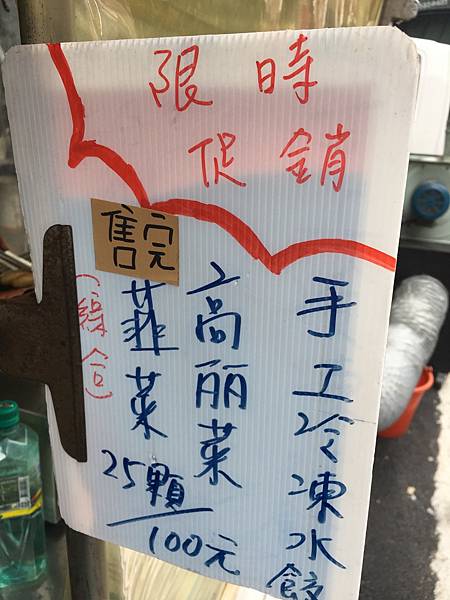 限時
促銷
手工冷凍水餃
高丽菜
售完
韮菜
(綜合)
25顆/100元